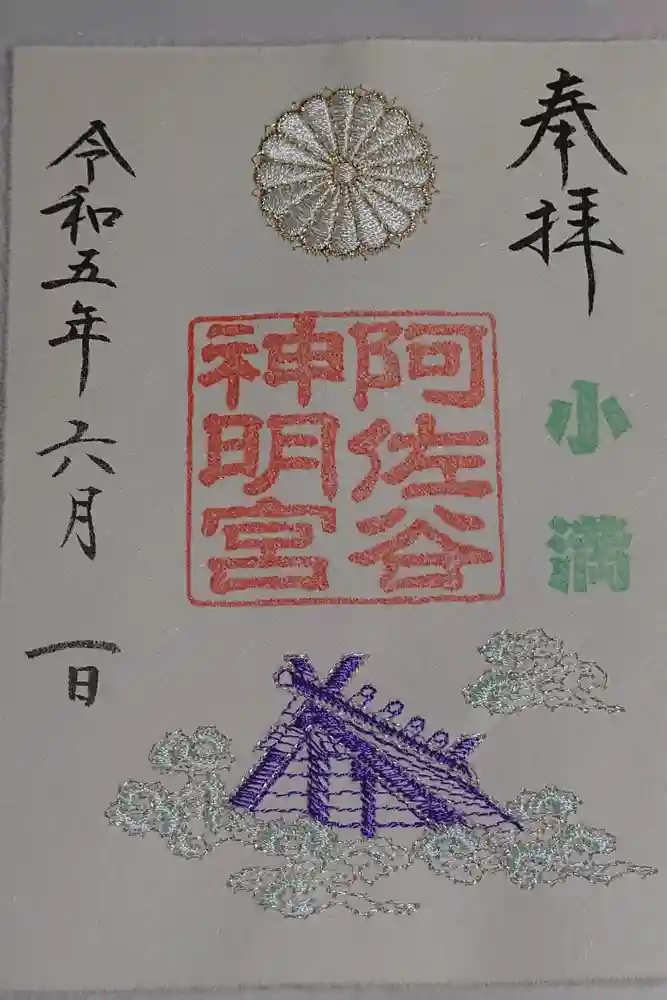 奉拝
小満
阿佐谷
神明宮
令和五年六月一日